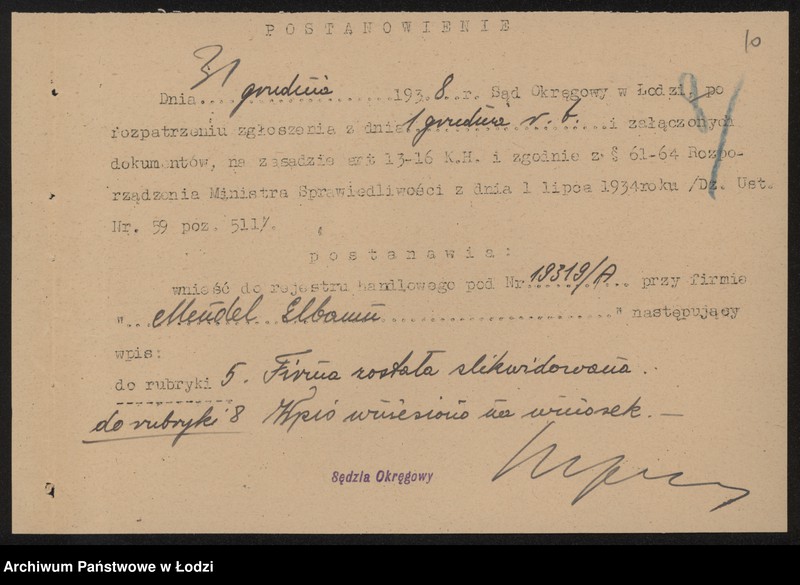 POSTANOWIENIE
10
Dnia 31 grudnia 1938.r. Sąd Okręgowy w Łodzi, po
rozpatrzeniu zgłoszenia z dnia 1 grudnia r.b. i załączonych
dokumentów, na zasadzie art 13-16 K.H. i zgolnie z § 61-64 Rozpo-
rządzenia Ministra Sprawiedliwości z dnia 1 lipca 1934roku /Dz. Ust.
Nr. 59 poz. 511/.
postanawia:
wnieść do rejestru handlowego pod Nr. 19319/A przy firmie
"Mendel Elbaum" następujący
wpis:
do rubryki 5. Firma została zlikwidowana.
do rubryki 8 Wpis wniesiono na wniosek.—
Sędzia Okręgowy
Archiwum Państwowe w Łodzi